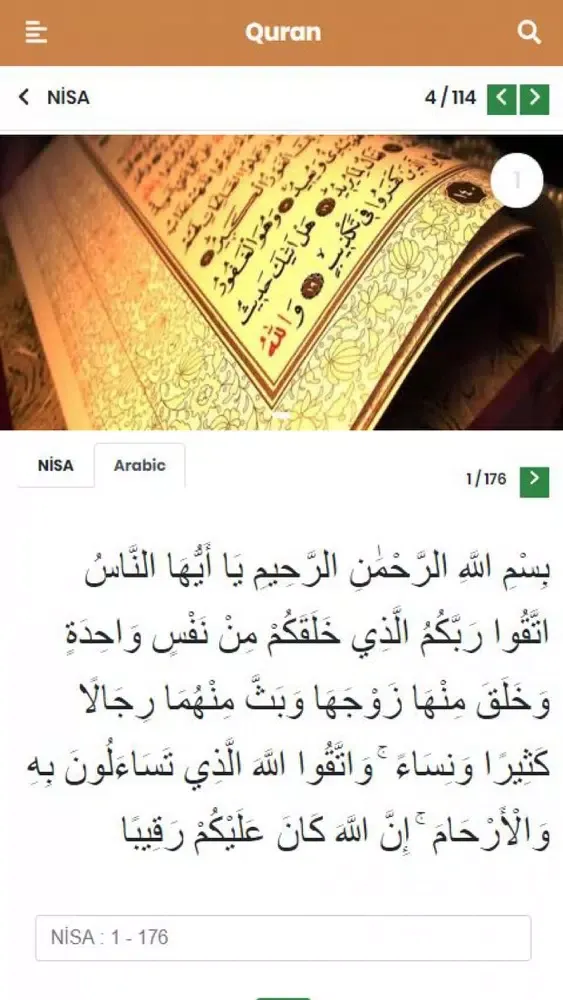 Quran
NİSA
4 / 114
1
وَهُوَ الْغَفُورُ
هَلْ أَتٰيكَ حَدِيثُ
وَاللّٰهُ
NİSA
Arabic
1 / 176
بِسْمِ اللَّهِ الرَّحْمَٰنِ الرَّحِيمِ يَا أَيُّهَا النَّاسُ
اتَّقُوا رَبَّكُمُ الَّذِي خَلَقَكُمْ مِنْ نَفْسٍ وَاحِدَةٍ
وَخَلَقَ مِنْهَا زَوْجَهَا وَبَثَّ مِنْهُمَا رِجَالًا
كَثِيرًا وَنِسَاءً ۚ وَاتَّقُوا اللَّهَ الَّذِي تَسَاءَلُونَ بِهِ
وَالْأَرْحَامَ ۚ إِنَّ اللَّهَ كَانَ عَلَيْكُمْ رَقِيبًا
NİSA : 1 - 176